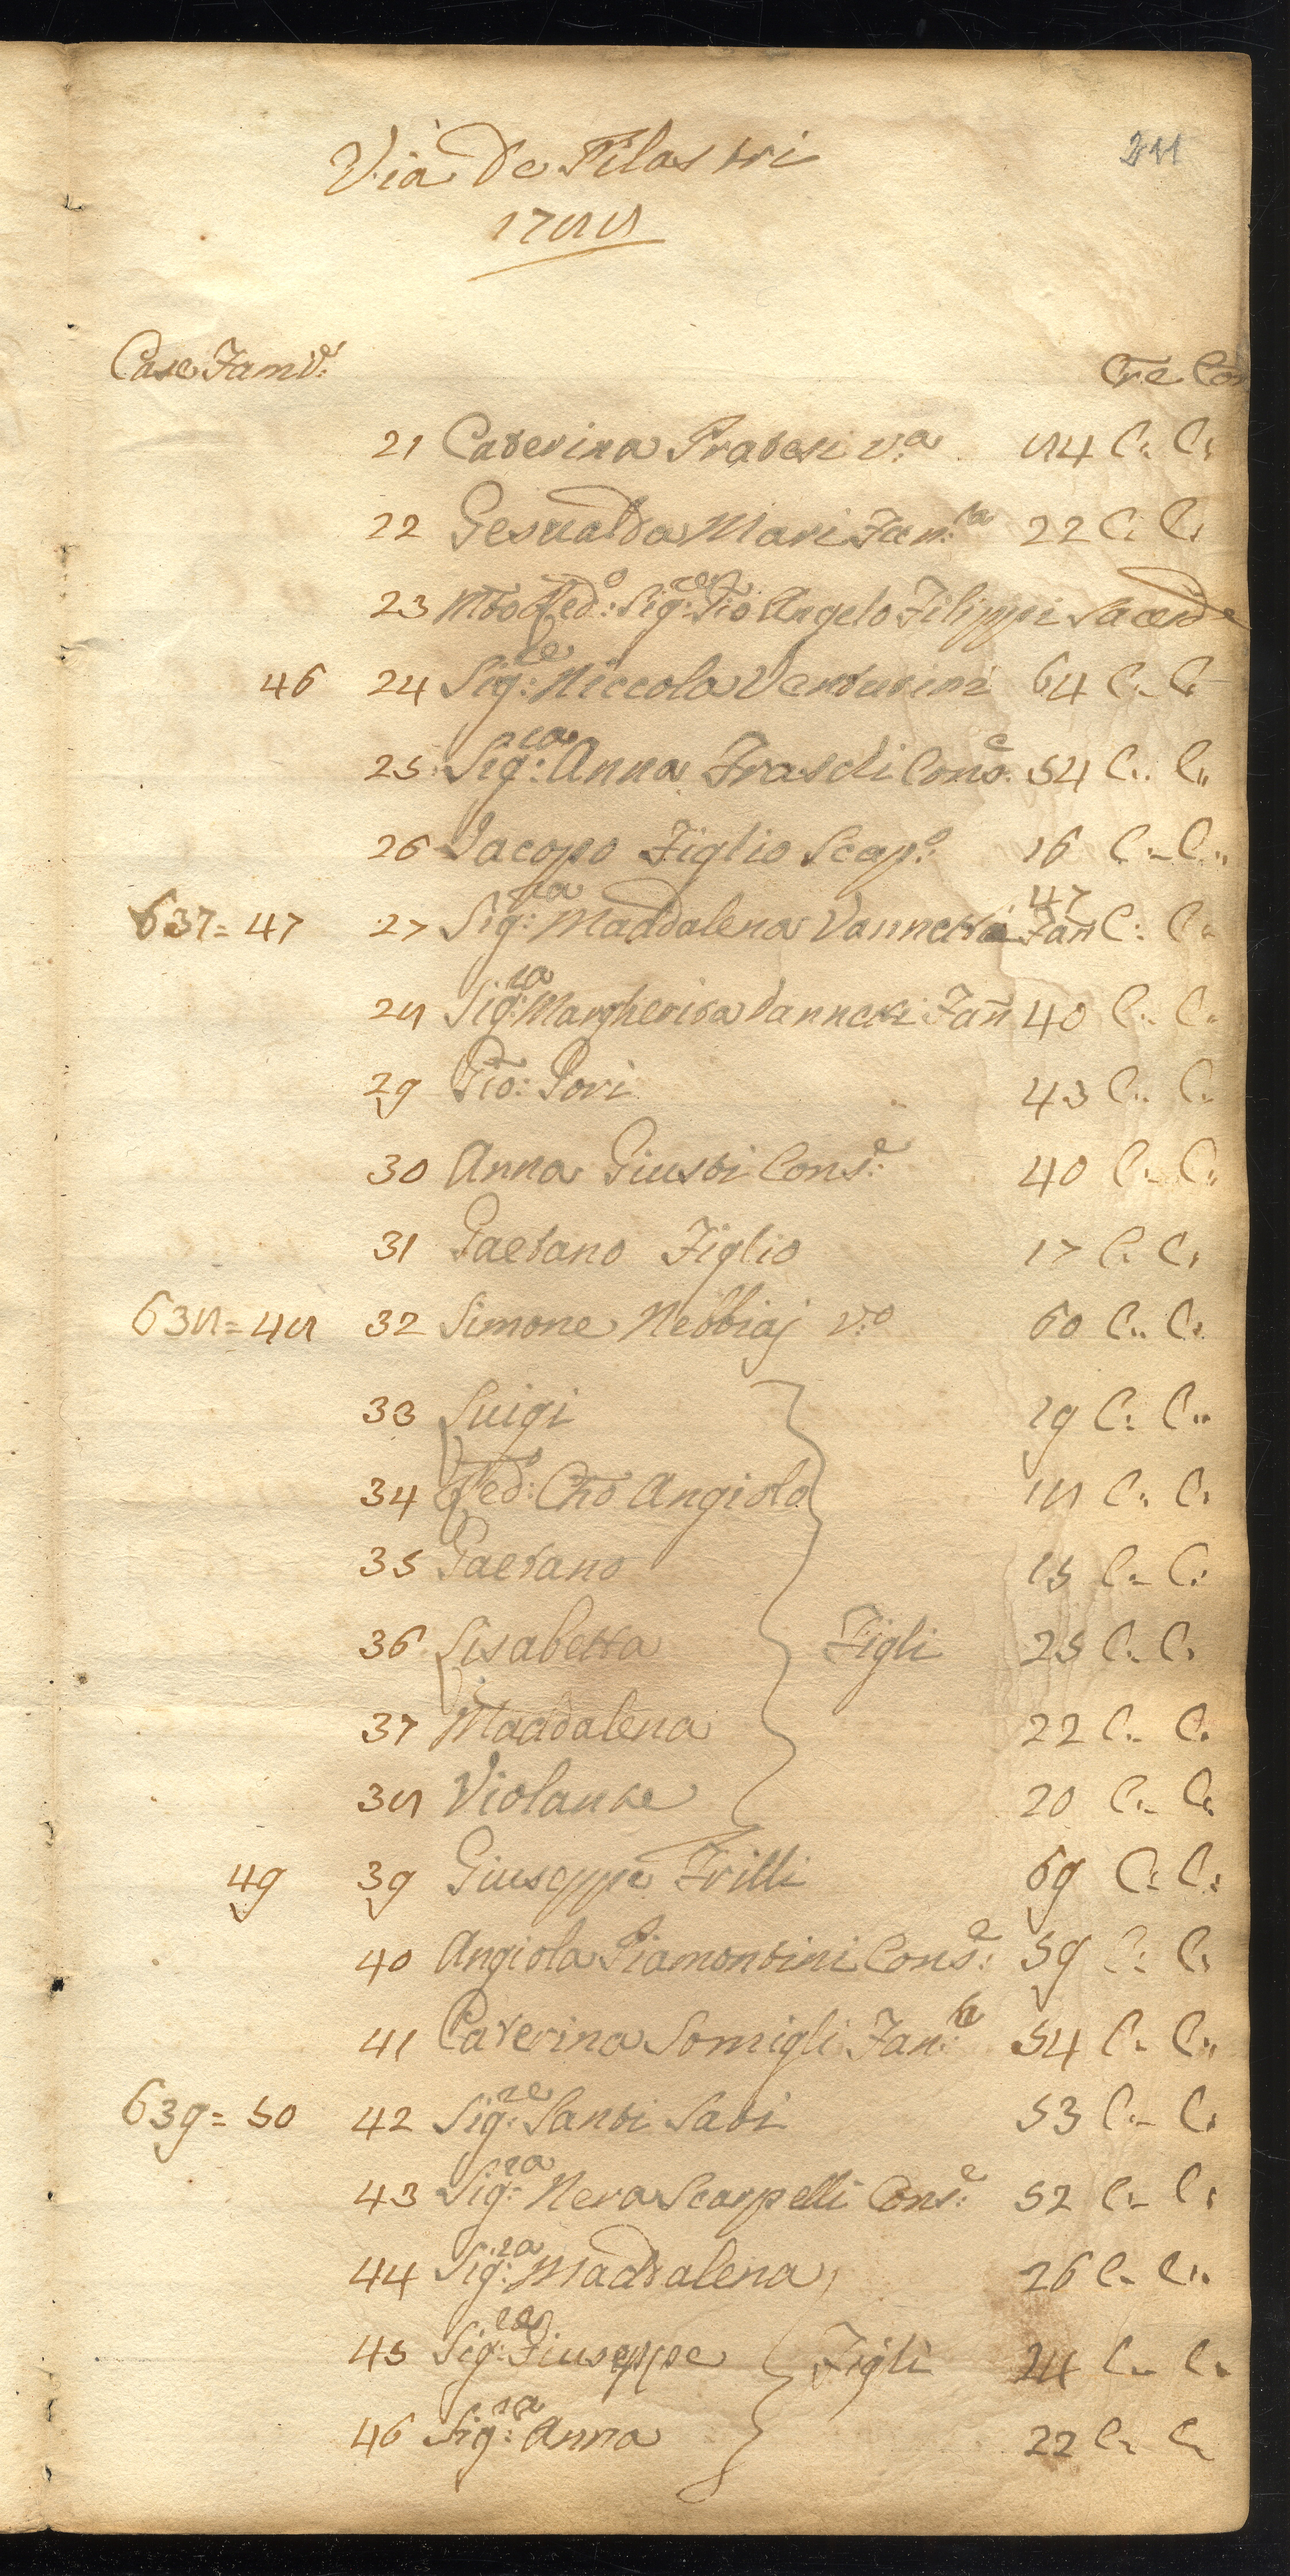 Via De Pilastri
1788
Case Fam.e
Cre Con
21 Caterina Pratesi v.a 84 C. C.
22 Gesualda Mari Fan.la 22 C. C.
23 Mto Red.o Sig.r Gio Angelo Filippi Sacerd.e
46 24 Sig.re Niccola Venturini 64 C. C.
25 Sig.ra Anna Fraschi Cons.e 54 C. C.
26 Jacopo Figlio Scap.o 16 C. C.
637 = 47 27 Sig.ra Maddalena Vannetti Fan 47 C. C.
28 Sig.ra Margherita Vannetti Fan 40 C. C.
29 Gio: Pori 43 C. C.
30 Anna Giusti Cons.e 40 C. C.
31 Gaetano Figlio 17 C. C.
638 = 48 32 Simone Nebbiaj v.o 60 C. C.
33 Luigi 19 C. C.
34 Red.o Cho Angiolo 18 C. C.
35 Gaetano 15 C. C.
36 Lisabetta Figli 25 C. C.
37 Maddalena 22 C. C.
38 Violante 20 C. C.
49 39 Giuseppe Frilli 69 C. C.
40 Angiola Piamontini Cons.e 59 C. C.
41 Caterina Somigli Fan.la 54 C. C.
639 = 50 42 Sig.re Santi Sati 53 C. C.
43 Sig.ra Nera Scarpelli Cons.e 52 C. C.
44 Sig.ra Maddalena 26 C. C.
45 Sig.re Giuseppe Figli 24 C. C.
46 Sig.ra Anna 22 C. C.